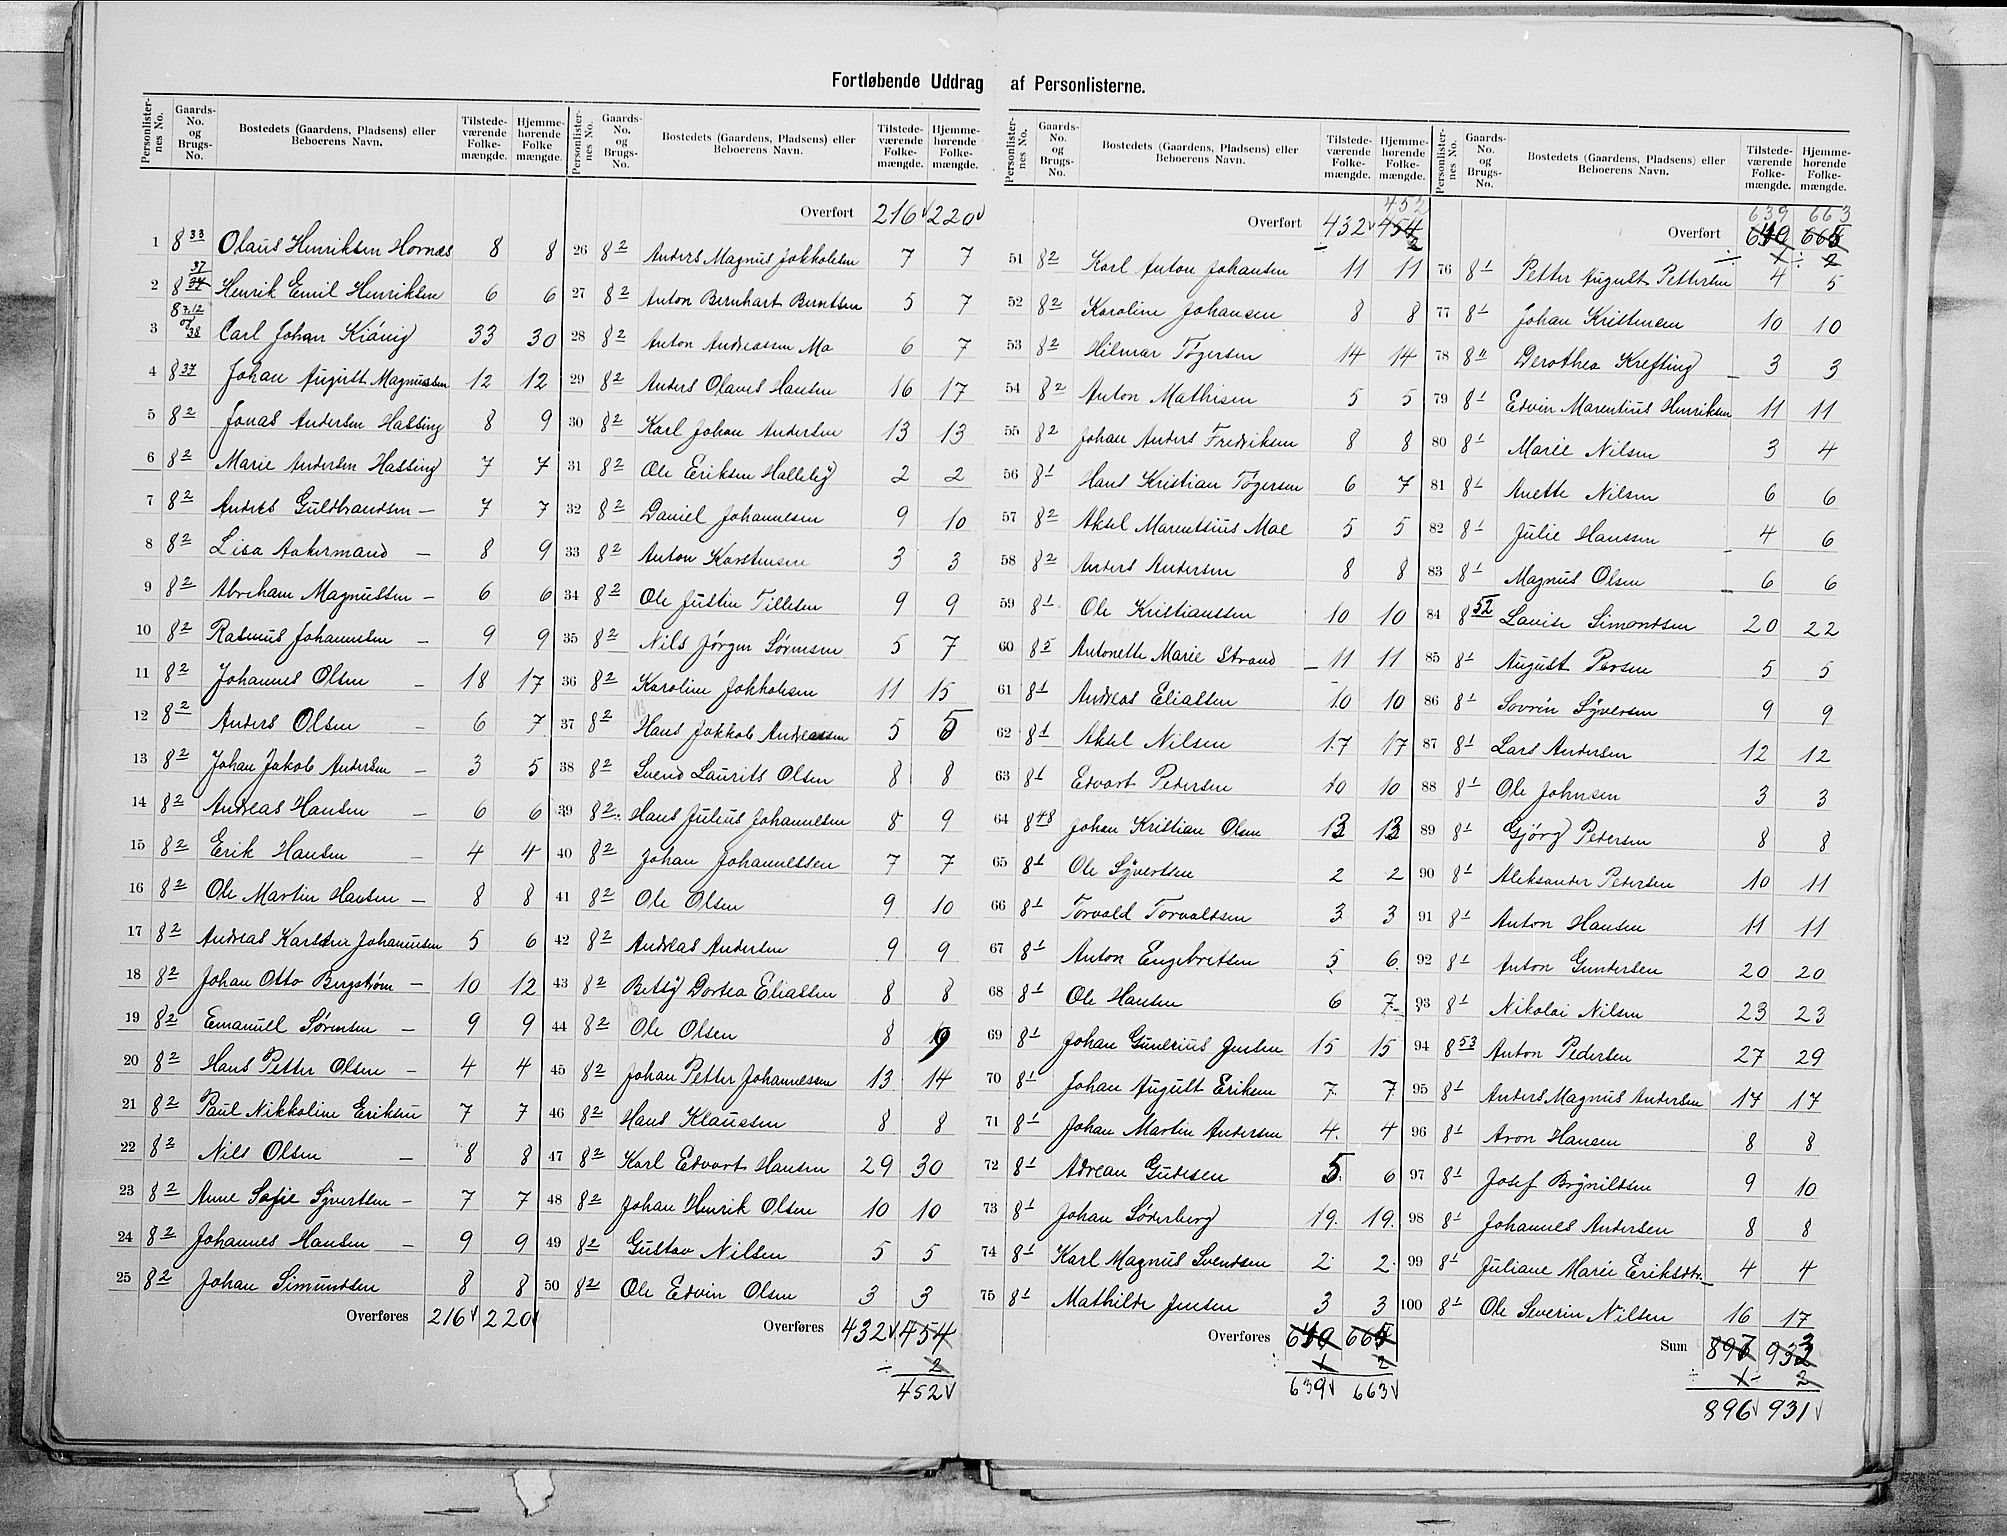 Fortløbende Uddrag af Personlisterne.
Personlister-nes No. Gaards-No. og Brugs-No. Bostedets (Gaardens, Pladsens) eller Beboerens Navn. Tilstede-værende Folke-mængde. Hjemme-hørende Folke mængde.
1 8 33 Olaus Henriksen Hornæs 8 8
2 8 37 Henrik Emil Henriksen 6 6
3 8 7,12 og 38 Carl Johan Kiønig 33 30
4 8 37 Johan August Magnussen 12 12
5 8 2 Jonas Andersen Hassing 8 9
6 8 2 Marie Andersen Hassing 7 7
7 8 2 Anders Guldbrandsen – 7 7
8 8 2 Lisa Aakermand – 8 9
9 8 2 Abreham Magnussen – 6 6
10 8 2 Rasmus Johannesen – 9 9
11 8 2 Johannes Olsen – 18 17
12 8 2 Anders Olsen – 6 7
13 8 2 Johan Jakob Andersen – 3 5
14 8 2 Andreas Hansen – 6 6
15 8 2 Erik Hansen – 4 4
16 8 2 Ole Martin Hansen – 8 8
17 8 2 Andreas Karsten Johannesen 5 6
18 8 2 Johan Otto Bergstrøm – 10 12
19 8 2 Emanuell Sørensen – 9 9
20 8 2 Hans Petter Olsen – 4 4
21 8 2 Paul Nikkoline Eriksen 7 7
22 8 2 Nils Olsen – 8 8
23 8 2 Anne Sofie Syvertsen – 7 7
24 8 2 Johannes Hansen – 9 9
25 8 2 Johan Simundsen 8 8
Overføres 216 220
Personlister-nes No. Gaards-No. og Brugs-No. Bostedets (Gaardens, Pladsens) eller Beboerens Navn. Tilstede-værende Folke-mængde. Hjemme-hørende Folke-mængde.
Overført 216 220
26 8 2 Anders Magnus Jokkobsen 7 7
27 8 2 Anton Bernhart Berntsen 5 7
28 8 2 Anton Andreassen Mo 6 7
29 8 2 Anders Olaves Hansen 16 17
30 8 2 Karl Johan Andersen 13 13
31 8 2 Ole Eriksen Halleby 2 2
32 8 2 Daniel Johannesen 9 10
33 8 2 Anton Karstensen 3 3
34 8 2 Ole Justin Tillesen 9 9
35 8 2 Nils Jørgen Sørensen 5 7
36 8 2 Karoline Jokkobsen 11 15
37 8 2 Hans Jakkob Andreassen 5 5
38 8 2 Svend Laurits Olsen 8 8
39 8 2 Hans Julius Johannesen 8 9
40 8 2 Johan Johannessen 7 7
41 8 2 Ole Olsen 9 10
42 8 2 Andreas Andersen 9 9
43 8 2 Betsy Dortea Eliassen 8 8
44 8 2 Ole Olsen 8 9
45 8 2 Johan Petter Johannessen 13 14
46 8 2 Hans Klaussen 8 8
47 8 2 Karl Edvart Hansen 29 30
48 8 2 Johan Henrik Olsen 10 10
49 8 2 Gustav Nilsen 5 5
50 8 2 Ole Edvin Olsen 3 3
Overføres 432 454
÷ 2
452
Personlister-nes No. Gaards-No. og Brugs-No. Bostedets (Gaardens, Pladsens) eller Beboerens Navn. Tilstede-værende Folke-mængde. Hjemme-hørende Folke-mængde.
452
Overført 432 454
÷ 2
51 8 2 Karl Anton Johansen 11 11
52 8 2 Karoline Johansen 8 8
53 8 2 Hilmar Tøgersen 14 14
54 8 2 Anton Mathisen 5 5
55 8 2 Johan Anders Fredriksen 8 8
56 8 1 Hans Kristian Tøgersen 6 7
57 8 2 Aksel Marentsius Moe 5 5
58 8 2 Anders Andersen 8 8
59 8 1 Ole Kristianssen 10 10
60 8 5 Antonette Marie Strand 11 11
61 8 1 Andreas Eliassen 10 10
62 8 1 Aksel Nilsen 17 17
63 8 1 Edvart Pedersen 10 10
64 8 48 Johan Kristian Olsen 13 13
65 8 1 Ole Syvertsen 2 2
66 8 1 Torvald Torvaldsen 3 3
67 8 1 Anton Engebretsen 5 6
68 8 1 Ole Hansen 6 7
69 8 1 Johan Gunerius Jensen 15 15
70 8 1 Johan August Eriksen 7 7
71 8 1 Johan Martin Andersen 4 4
72 8 1 Adrean Gudesen 5 6
73 8 1 Johan Søderberg 19 19
74 8 1 Karl Magnus Svendsen 2 2
75 8 1 Mathilde Jensen 3 3
Overføres 640 665
÷ 1 2
639 663
Personlister-nes No. Gaards-No. og Brugs-No. Bostedets (Gaardens, Pladsens) eller Beboerens Navn. Tilstede-værende Folke-mængde. Hjemme-hørende Folke-mængde.
639 663
Overført 640 665
÷ 1 ÷ 2
76 8 1 Petter August Pettersen 4 5
77 8 1 Johan Kristensen 10 10
78 8 11 Derothea Krefting 3 3
79 8 1 Edvin Marentius Henriksen 11 11
80 8 1 Marie Nilsen 3 4
81 8 1 Anette Nilsen 6 6
82 8 1 Julie Hanssen 4 6
83 8 1 Magnus Olsen 6 6
84 8 52 Lovise Simondsen 20 22
85 8 1 August Persen 5 5
86 8 1 Sovrin Syversen 9 9
87 8 1 Lars Andersen 12 12
88 8 1 Ole Johnsen 3 3
89 8 1 Gjørg Pedersen 8 8
90 8 1 Aleksander Pedersen 10 11
91 8 1 Anton Hansen 11 11
92 8 1 Anton Gundersen 20 20
93 8 1 Nikolai Nilsen 23 23
94 8 53 Anton Pedersen 27 29
95 8 1 Anders Magnus Andersen 17 17
96 8 1 Aron Hansen 8 8
97 8 1 Josef Brynildsen 9 10
98 8 1 Johannes Andersen 8 8
99 8 1 Juliane Marie Eriksdtr. 4 4
100 8 1 Ole Severin Nilsen 16 17
Sum 897 933
÷ 1 ÷ 2
896 931